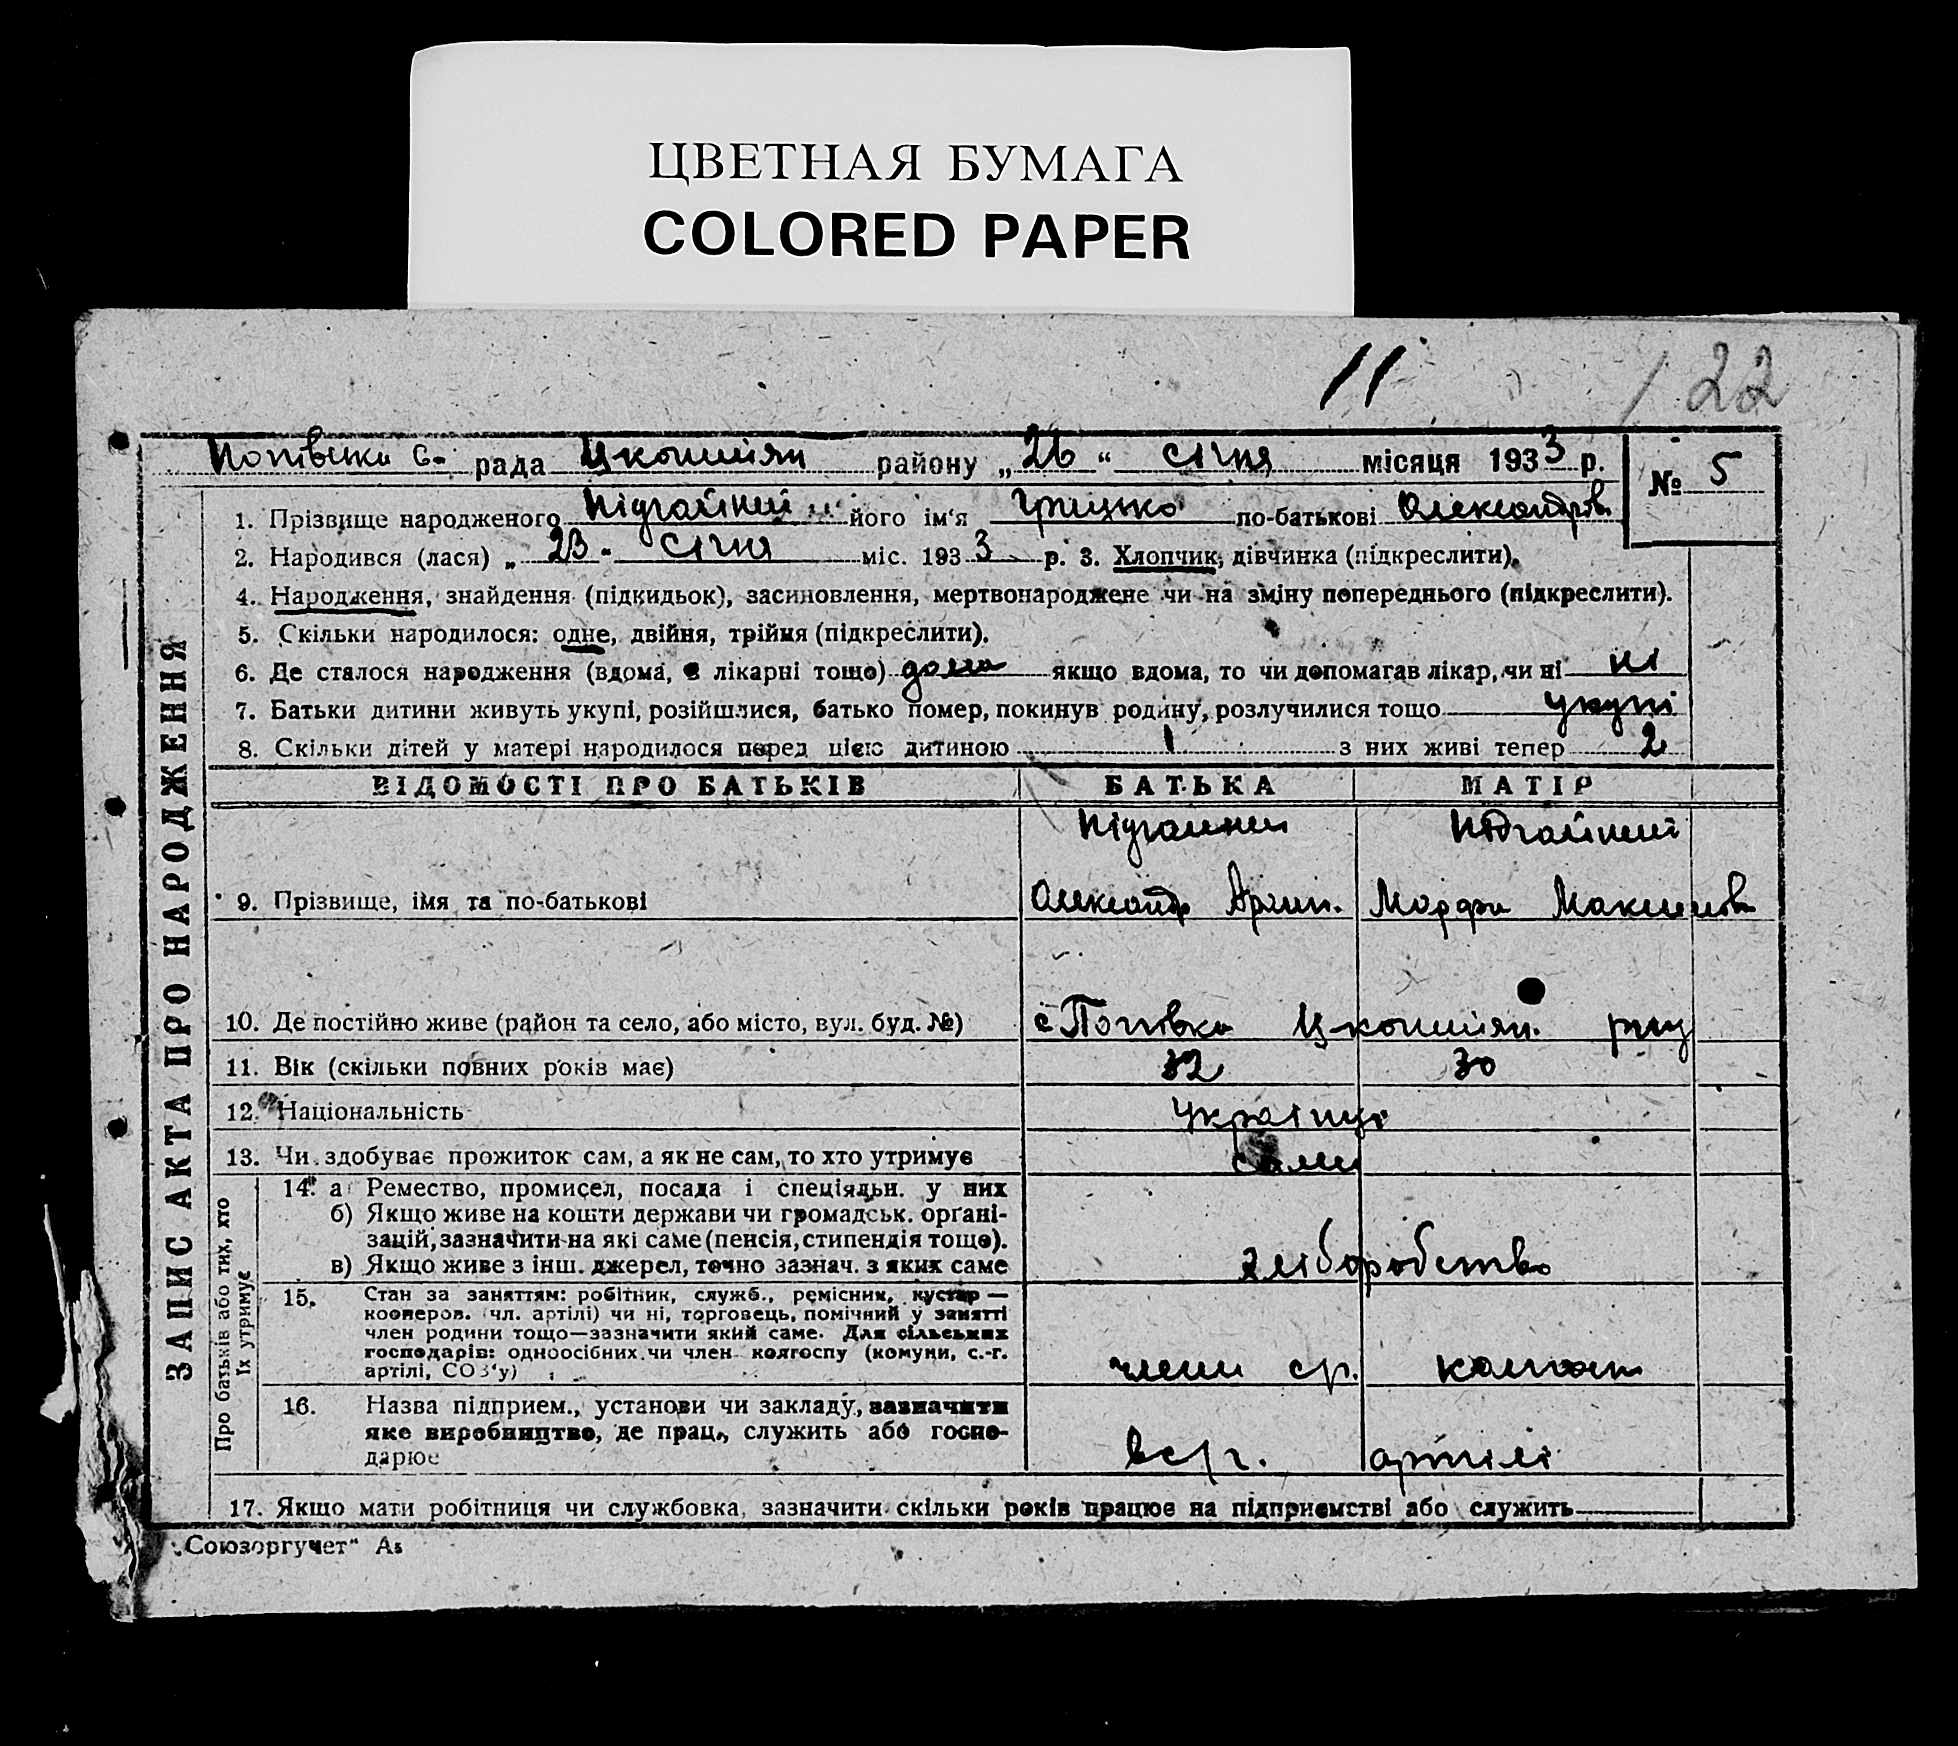 ЦВЕТНАЯ БУМАГА
COLORED PAPER
11
122
рада району „26“ січня місяця 1933 р.
№ 5
1. Прізвище народженого Підгайний його ім‘я Грицько по-батькові Олександров
2. Народився (лася) „23“ січня міс. 1933 р. 3. Хлопчик, дівчинка (підкреслити).
4. Народження, знайдення (підкидьок), засиновлення, мертвонароджене чи на зміну попереднього (підкреслити).
5. Скільки народилося: одне, двійня, трійня (підкреслити).
6. Де сталося народження (вдома, в лікарні тощо) дома якщо вдома, то чи допомагав лікар, чи ні ні
7. Батьки дитини живуть укупі, розійшлися, батько помер, покинув родину, розлучилися тощо укупі
8. Скільки дітей у матері народилося перед цією дитиною 1 з них живі тепер 2
ВІДОМОСТІ ПРО БАТЬКІВ БАТЬКА МАТІР
Підгайний Підгайний
9. Прізвище, імя та по-батькові Олександр Марфа Максимов
10. Де постійно живе (район та село, або місто, вул. буд. №) с Попівка
11. Вік (скільки повних років має) 32 30
12. Національність українці
13. Чи здобуває прожиток сам, а як не сам, то хто утримує сами
14. а Ремество, промисел, посада і спеціяльн. у них
б) Якщо живе на кошти держави чи громадськ. органі-
зацій, зазначити на які саме (пенсія, стипендія тощо).
в) Якщо живе з інш. джерел, точно зазнач. з яких саме хліборобство
15. Стан за заняттям: робітник, служб., ремісник, кустар —
кооперов. (чл. артілі) чи ні, торговець, помічний у занятті
член родини тощо—зазначити який саме. Для сільських
господарів: одноосібних чи член колгоспу (комуни, с.-г.
артілі, СОЗ‘у) члени
16. Назва підприєм., установи чи закладу, зазначити
яке виробництво, де працює, служить або госпо-
дарює артілі
17. Якщо мати робітниця чи службовка, зазначити скільки років працює на підприємстві або служить
ЗАПИС АКТА ПРО НАРОДЖЕННЯ
Про батьків або тих, хто
їх утримує
„Союзоргучет“